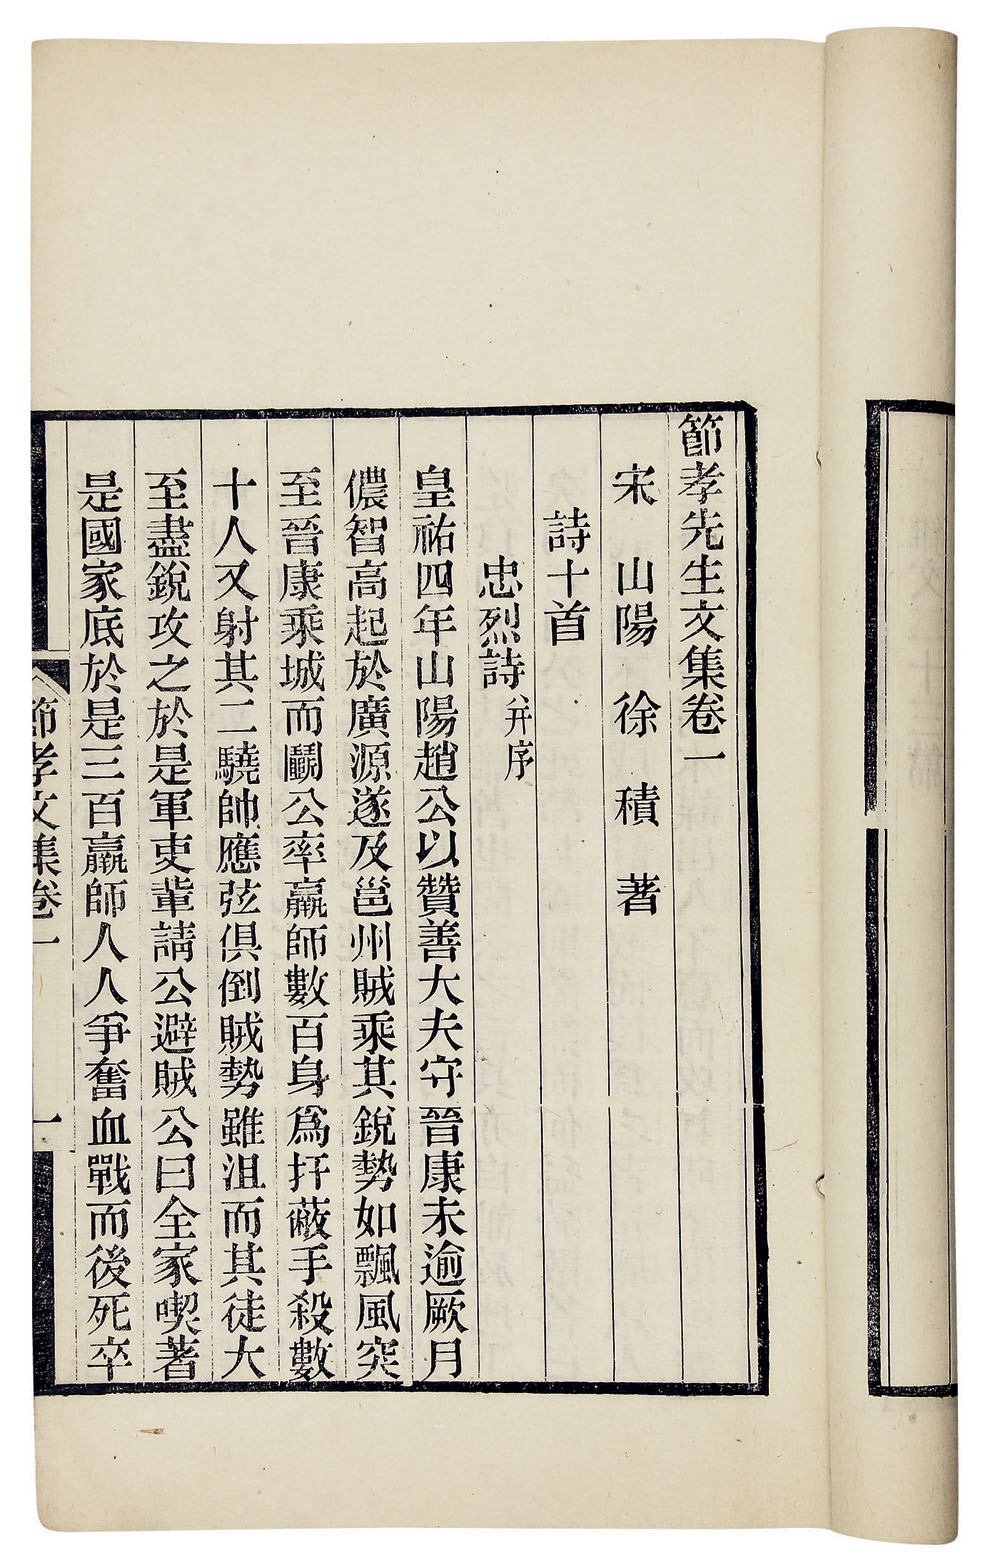 節孝先生文集卷一
宋　山陽　徐　積　著
詩十首
忠烈詩并序
皇祐四年山陽趙公以贊善大夫守晉康未逾厥月
儂智高起於廣源遂及邕州賊乘其銳勢如飄風突
至晉康乘城而鬭公率羸師數百身爲扞蔽手殺數
十人又射其二驍帥應弦俱倒賊勢雖沮而其徒大
至盡銳攻之於是軍吏輩請公避賊公曰全家喫著
是國家底於是三百羸師人人爭奮血戰而後死卒
節孝文集卷一　一